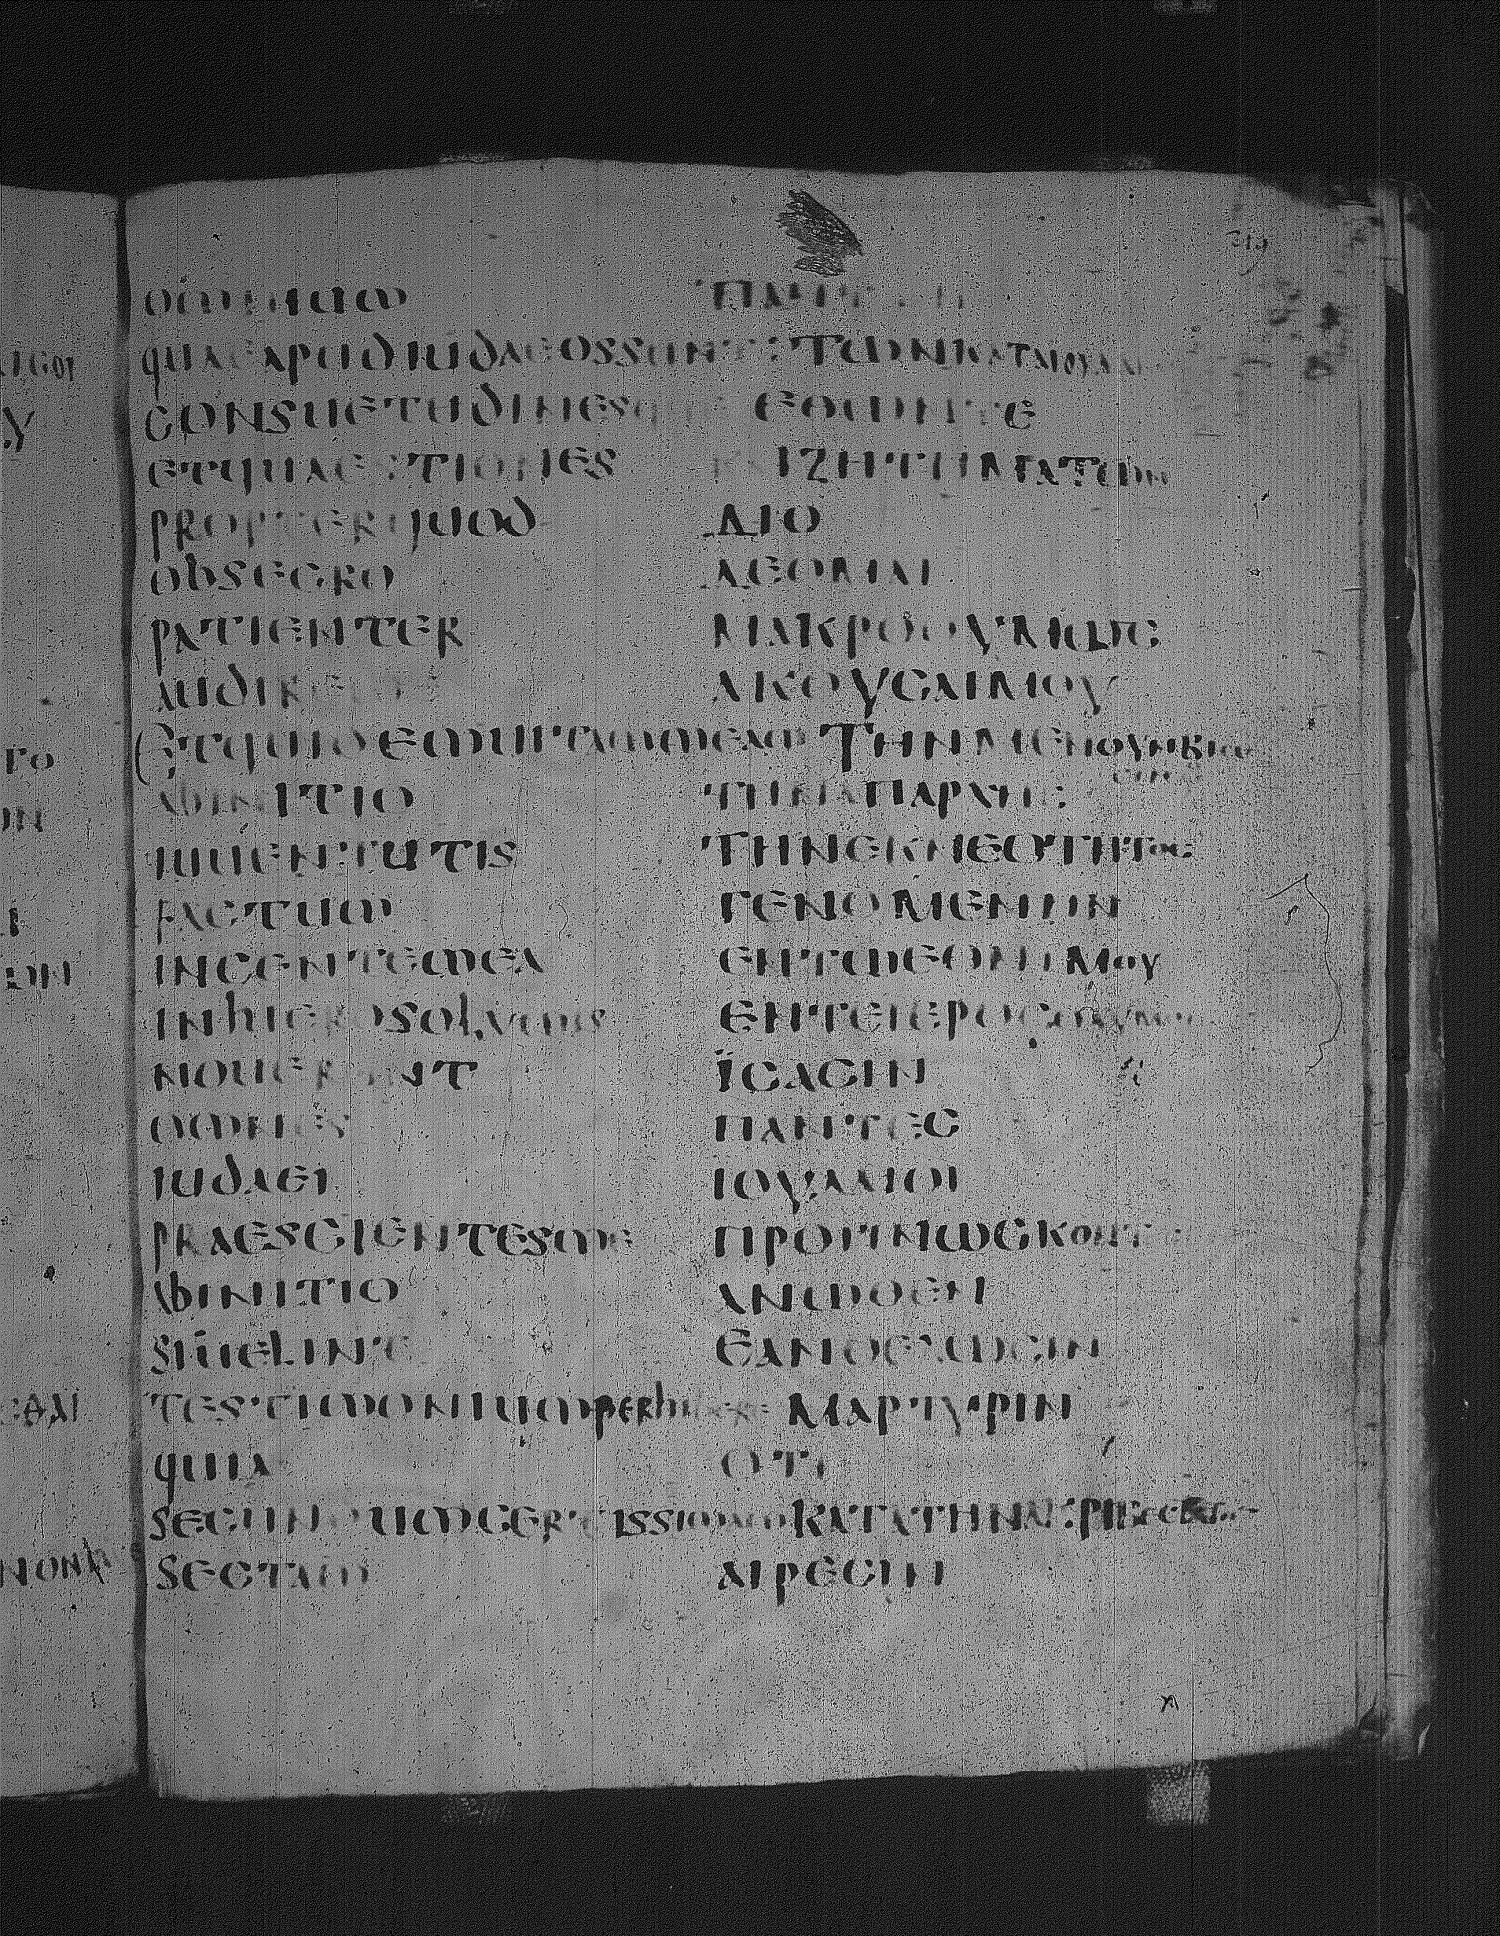 omnium ΠΑΝΤΩΝ
quae apud iudaeos sunt ΤΩΝ ΚΑΤΑ ΙΟΥΔΑΙ
consuetudines ΕΘΩΝ ΤΕ
et quaestiones ΚΑΙ ΖΗΤΗΜΑΤΩΝ
propter quod ΔΙΟ
obsecro ΔΕΟΜΑΙ
patienter ΜΑΚΡΟΘΥΜΩΣ
audire ΑΚΟΥΣΑΙ ΜΟΥ
et quidem uitam meam ΤΗΝ ΜΕΝ ΟΥΝ ΒΙΩΣΙΝ
ab initio ΤΗΝ ΑΠ ΑΡΧΗΣ
iuuentutis ΤΗΝ ΕΚ ΝΕΟΤΗΤΟΣ
factum ΓΕΝΟΜΕΝΗΝ
in gente mea ΕΝ ΤΩ ΕΘΝΙ ΜΟΥ
in hierosolymis ΕΝ ΤΕ ΙΕΡΟΣΟΛΥΜΟΙΣ
nouerunt ΪΣΑΣΙΝ
omnes ΠΑΝΤΕΣ
iudaei ΙΟΥΔΑΙΟΙ
praescientes me ΠΡΟΓΙΝΩΣΚΟΝΤΕΣ
ab initio ΑΝΩΘΕΝ
si uelint ΕΑΝ ΘΕΛΩΣΙΝ
testimonium perhibere ΜΑΡΤΥΡΙΝ
quia ΟΤΙ
secundum certissimam ΚΑΤΑ ΤΗΝ ΑΚΡΙΒΕΣΤΑΤΗΝ
sectam ΑΙΡΕΣΙΝ